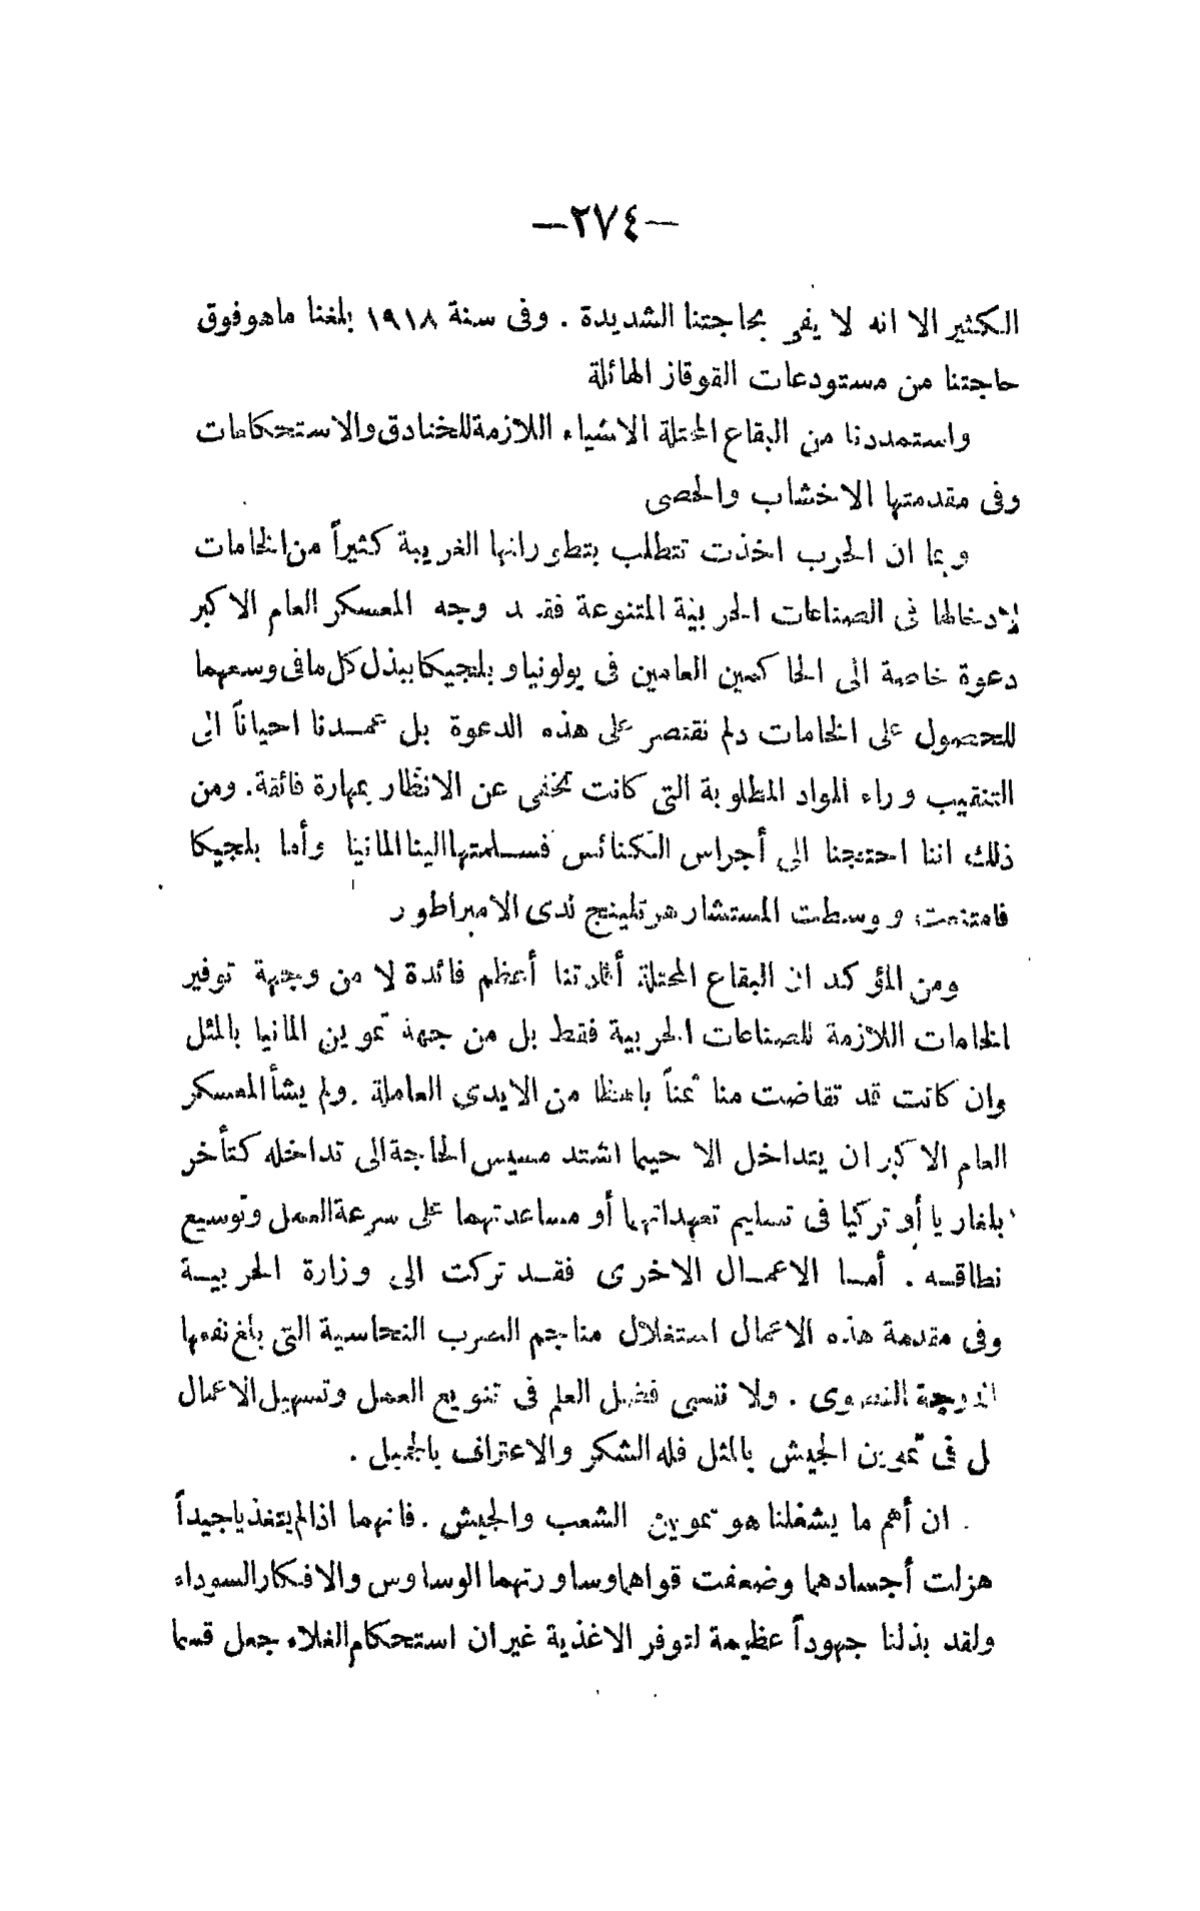 —٢٧٤—
الكثير الا انه لا يفى بحاجتنا الشديدة . وفى سنة ١٩١٨ بلغنا ماهوفوق
حاجتنا من مستودعات القوقاز الهائلة
واستمددنا من البقاع المحتلة الاشياء اللازمة للخنادق والاستحكامات
وفى مقدمتها الاخشاب والحصى
وبما ان الحرب اخذت تتطلب بتطوراتها الغريبة كثيراً من الخامات
لادخالها فى الصناعات الحربية المتنوعة فقد وجه المعسكر العام الاكبر
دعوة خاصة الى الحاكمين العامين فى بولونيا وبلجيكا ببذل كل مافى وسعهما
للحصول على الخامات ولم نقتصر على هذه الدعوة بل عمدنا احياناً الى
التنقيب وراء المواد المطلوبة التى كانت تخفى عن الانظار بمهارة فائقة. ومن
ذلك اننا احتجنا الى أجراس الكنائس فسلمتها الينا المانيا وأما بلجيكا
فامتنعت ووسطت المستشار هرتلينج لدى الامبراطور
ومن المؤكد ان البقاع المحتلة أفادتنا أعظم فائدة لا من وجهة توفير
الخامات اللازمة للصناعات الحربية فقط بل من جهة تموين المانيا بالمثل
وان كانت قد تقاضت منا ثمناً باهظا من الايدى العاملة . ولم يشأ المعسكر
العام الاكبر ان يتداخل الا حينما اشتد مسيس الحاجة الى تداخله كتأخر
بلغاريا أو تركيا فى تسليم تعهداتهما أو مساعدتهما على سرعة العمل وتوسيع
نطاقه . أما الاعمال الاخرى فقد تركت الى وزارة الحربية
وفى مقدمة هذه الاعمال استغلال مناجم الصرب النحاسية التى بلغ نفعها
الدرجة القصوى . ولا ننسى فضل العلم فى تنويع العمل وتسهيل الاعمال
ل فى تموين الجيش بالمثل فله الشكر والاعتراف بالجميل .
ان أهم ما يشغلنا هو تموين الشعب والجيش . فانهما اذا لم يتغذيا جيداً
هزلت أجسادهما وضعفت قواهما وساورتهما الوساوس والافكار السوداء
ولقد بذلنا جهوداً عظيمة لتوفر الاغذية غير ان استحكام الغلاء جعل قسما